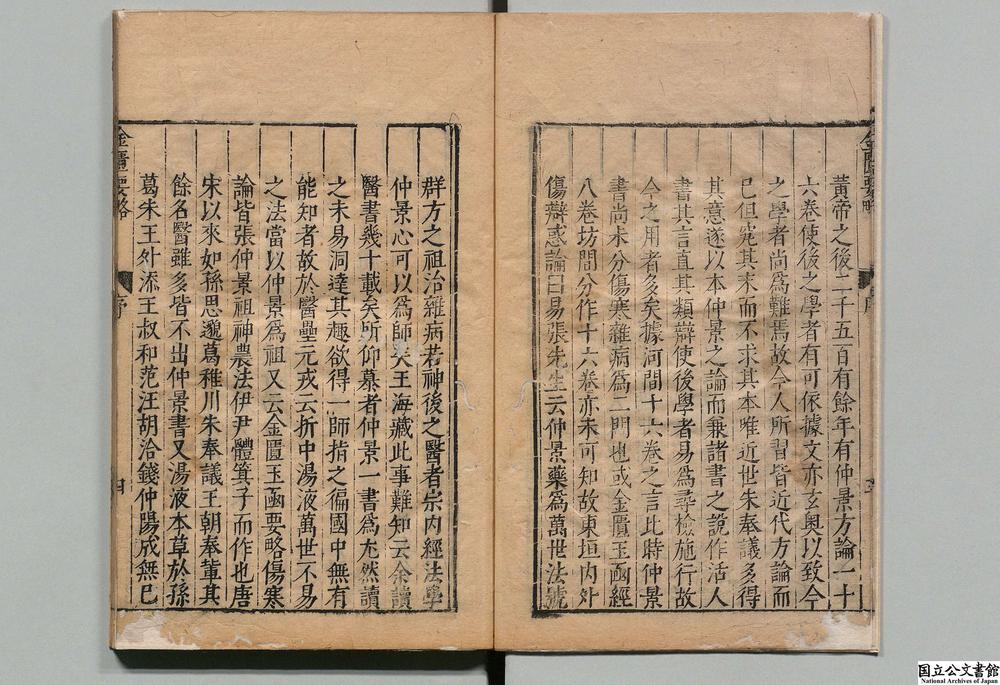 金匱要略
序
黃帝之後二千五百有餘年有仲景方論一十
六卷使後之學者有可依據文亦玄奧以致今
之學者尚爲難焉故今人所習皆近代方論而
已但究其末而不求其本唯近世朱奉議多得
其意遂以本仲景之論而兼諸書之說作活人
書其言直其類辯使後學者易爲尋檢施行故
今之用者多矣據河間十六卷之言此時仲景
書尚未分傷寒雜病爲二門也或金匱玉函經
八卷坊間分作十六卷亦未可知故東垣内外
傷辯惑論曰易張先生云仲景藥爲萬世法號
群方之祖治雜病若神後之醫者宗内經法學
仲景心可以爲師矣王海藏此事難知云余讀
醫書幾十載矣所仰慕者仲景一書爲尤然讀
之未易洞達其趣欲得一師指之徧國中無有
能知者故於醫壘元戎云折中湯液萬世不易
之法當以仲景爲祖又云金匱玉函要略傷寒
論皆張仲景祖神農法伊尹體箕子而作也唐
宋以來如孫思邈葛稚川朱奉議王朝奉輩其
餘名醫雖多皆不出仲景書又湯液本草於孫
葛朱王外添王叔和范汪胡洽錢仲陽成無已
金匱要略
序
四
国立公文書館
National Archives of Japan